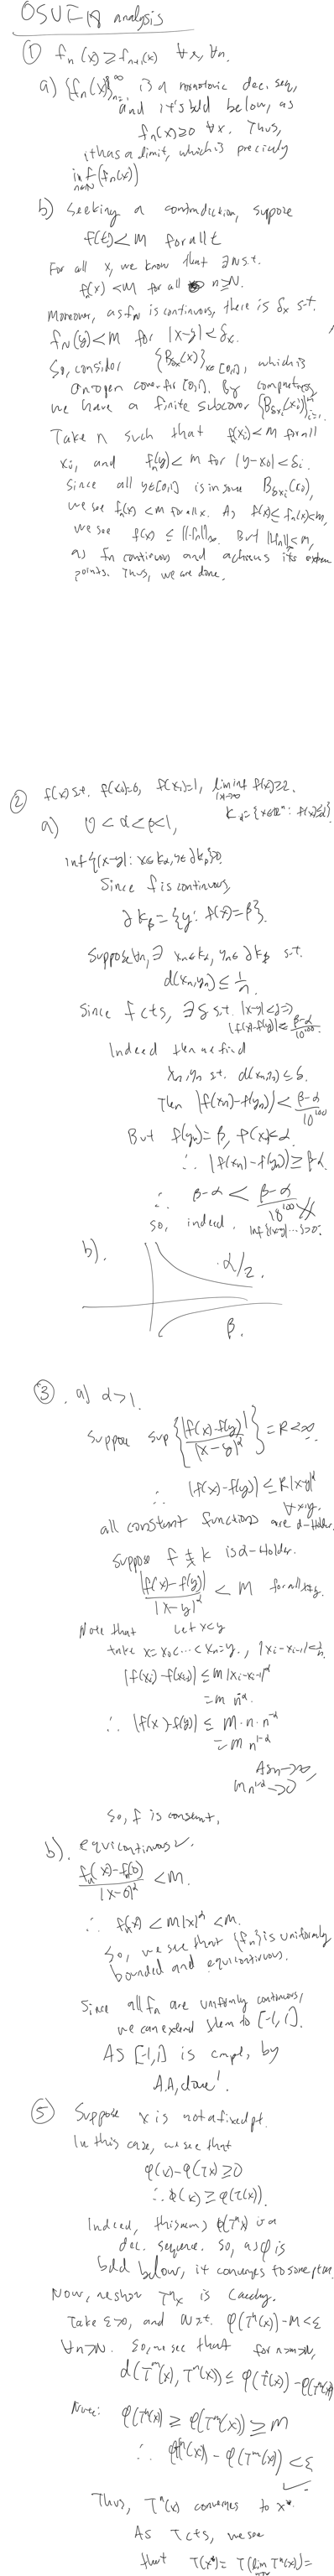 OSU F18 analysis
① fₙ(x) ≥ fₙ₊₁(x) ∀x, ∀n.
a) {fₙ(x)}ₙ₌₁^∞ is a monotonic dec. seq,
and it's bdd below, as
fₙ(x) ≥ 0 ∀x. Thus,
it has a limit, which is precisely
inf_{n∈ℕ}(fₙ(x))
b) Seeking a contradiction, suppose
f(t) < M for all t
For all x, we know that ∃N s.t.
fₙ(x) < M for all n ≥ N.
Moreover, as f_N is continuous, there is δₓ s.t.
f_N(y) < M for |x-y| < δₓ.
So, consider {B_δₓ(x)}_{x∈[0,1]}, which is
an open cover for [0,1]. By compactness,
we have a finite subcover {B_δxᵢ(xᵢ)}ᵢ₌₁ⁿ.
Take n such that f(xᵢ) < M for all
xᵢ, and fₙ(y) < M for |y-xᵢ| < δᵢ.
Since all y∈[0,1] is in some B_δxᵢ(xᵢ),
we see fₙ(x) < M for all x. As f(x) ≤ fₙ(x) < M,
we see f(x) ≤ ||fₙ||∞. But ||fₙ|| < M,
as fn continuous and achieves its extreme
points. Thus, we are done.
② f(x) s.t. f(x₀)=0, f(x₁)=1, liminf_{|x|→∞} f(x) ≥ 2.
K_α = {x∈ℝⁿ: f(x) ≤ α}
a) 0 < α < β < 1,
inf{|x-y|: x∈K_α, y∈∂K_β} > 0
Since f is continuous,
∂K_β = {y: f(y) = β}.
Suppose ∀n, ∃ xₙ∈K_α, yₙ∈∂K_β s.t.
d(xₙ,yₙ) ≤ 1/n.
Since f cts, ∃δ s.t. |x-y|<δ ⇒
|f(x)-f(y)| < (β-α)/10¹⁰⁰
Indeed then we find
xₙ,yₙ s.t. d(xₙ,yₙ) ≤ δ.
Then |f(xₙ)-f(yₙ)| < (β-α)/10¹⁰⁰
But f(yₙ) = β, f(xₙ) ≤ α
∴ |f(xₙ)-f(yₙ)| ≥ β-α
∴ β-α < (β-α)/10¹⁰⁰
So, indeed, inf{|x-y|...} > 0.
b). α/2.
β.
③ a) α > 1.
Suppose sup{|f(x)-f(y)|/|x-y|^α} = R < ∞.
∴ |f(x)-f(y)| ≤ R|x-y|^α
∀x,y.
all constant functions are α-Holder.
Suppose f ≠ k is α-Holder.
|f(x)-f(y)|/|x-y|^α < M for all x,y.
Note that Let x<y
take x = x₀ < ... < xₙ = y., |xᵢ-xᵢ₋₁| < 1/n.
|f(xᵢ)-f(xᵢ₋₁)| ≤ M|xᵢ-xᵢ₋₁|^α
= M n^-α.
∴ |f(x)-f(y)| ≤ M·n·n^-α
= M n^{1-α}
As n→∞,
M n^{1-α} → 0
So, f is constant.
b). equicontinuous ✓.
(fₙ(x)-fₙ(0))/|x-0|^α < M.
∴ fₙ(x) < M|x|^α < M.
So, we see that {fn} is uniformly
bounded and equicontinuous.
Since all fn are uniformly continuous,
we can extend them to [-1,1].
As [-1,1] is cmpt, by
A.A, done!
⑤ Suppose x is not a fixed pt.
In this case, we see that
φ(x)-φ(Tx) ≥ 0
∴ φ(x) ≥ φ(T(x)).
Indeed, this means φ(Tⁿx) is a
dec. sequence. So, as φ is
bdd below, it converges to some pt M.
Now, we show Tⁿx is Cauchy.
Take ε>0, and N s.t. φ(Tⁿ(x))-M < ε
∀n>N. So, we see that for n>m>N,
d(Tᵐ(x), Tⁿ(x)) ≤ φ(Tᵐ(x)) - φ(Tⁿ(x))
Note: φ(Tᵐ(x)) ≥ φ(Tⁿ(x)) ≥ M
∴ φ(Tᵐ(x)) - φ(Tⁿ(x)) < ε
✓.
Thus, Tⁿ(x) converges to x*.
As T cts, we see
that T(x*) = T(lim Tⁿ(x)) =